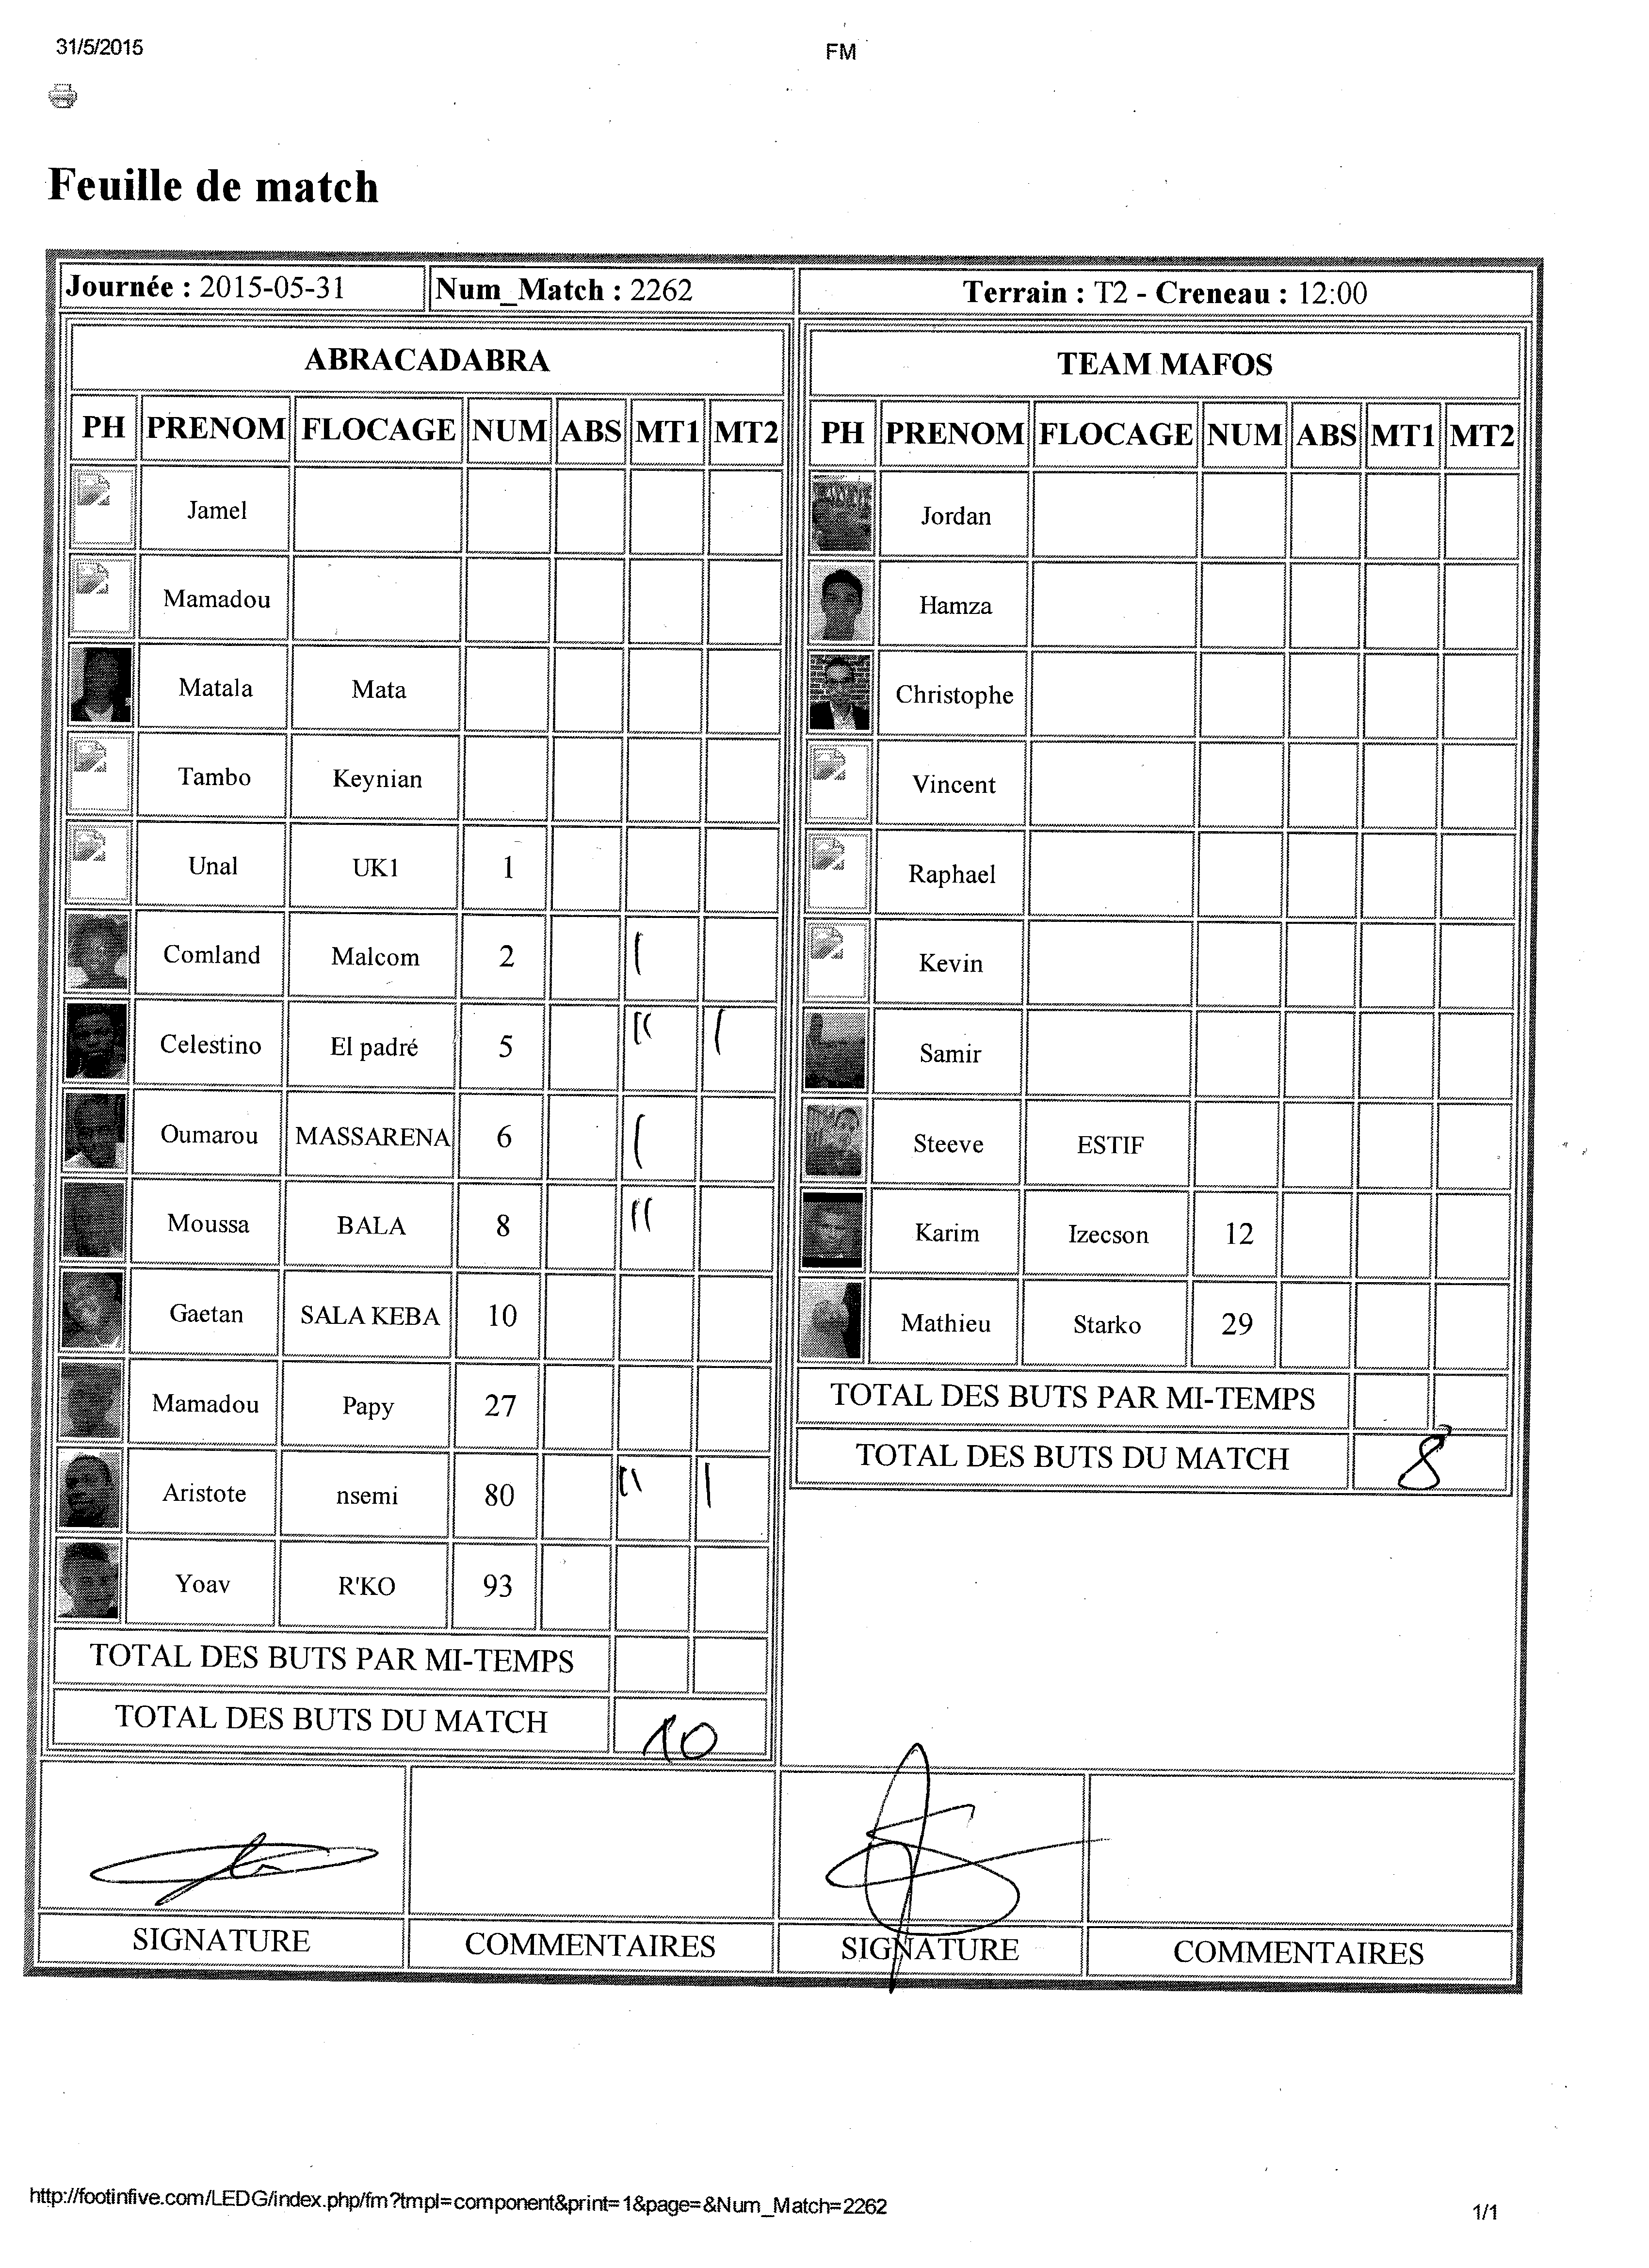 31/5/2015
FM
Feuille de match
Journée : 2015-05-31
Num_Match : 2262
Terrain : T2 - Creneau : 12:00
ABRACADABRA
PH PRENOM FLOCAGE NUM ABS MT1 MT2
Jamel
Mamadou
Matala Mata
Tambo Keynian
Unal UK1 1
Comland Malcom 2 |
Celestino El padré 5 || |
Oumarou MASSARENA 6 |
Moussa BALA 8 ||
Gaetan SALA KEBA 10
Mamadou Papy 27
Aristote nsemi 80 || |
Yoav R'KO 93
TOTAL DES BUTS PAR MI-TEMPS
TOTAL DES BUTS DU MATCH 10
TEAM MAFOS
PH PRENOM FLOCAGE NUM ABS MT1 MT2
Jordan
Hamza
Christophe
Vincent
Raphael
Kevin
Samir
Steeve ESTIF
Karim Izecson 12
Mathieu Starko 29
TOTAL DES BUTS PAR MI-TEMPS
TOTAL DES BUTS DU MATCH 8
SIGNATURE COMMENTAIRES SIGNATURE COMMENTAIRES
http://footinfive.com/LEDG/index.php/fm?tmpl=component&print=1&page=&Num_Match=2262
1/1